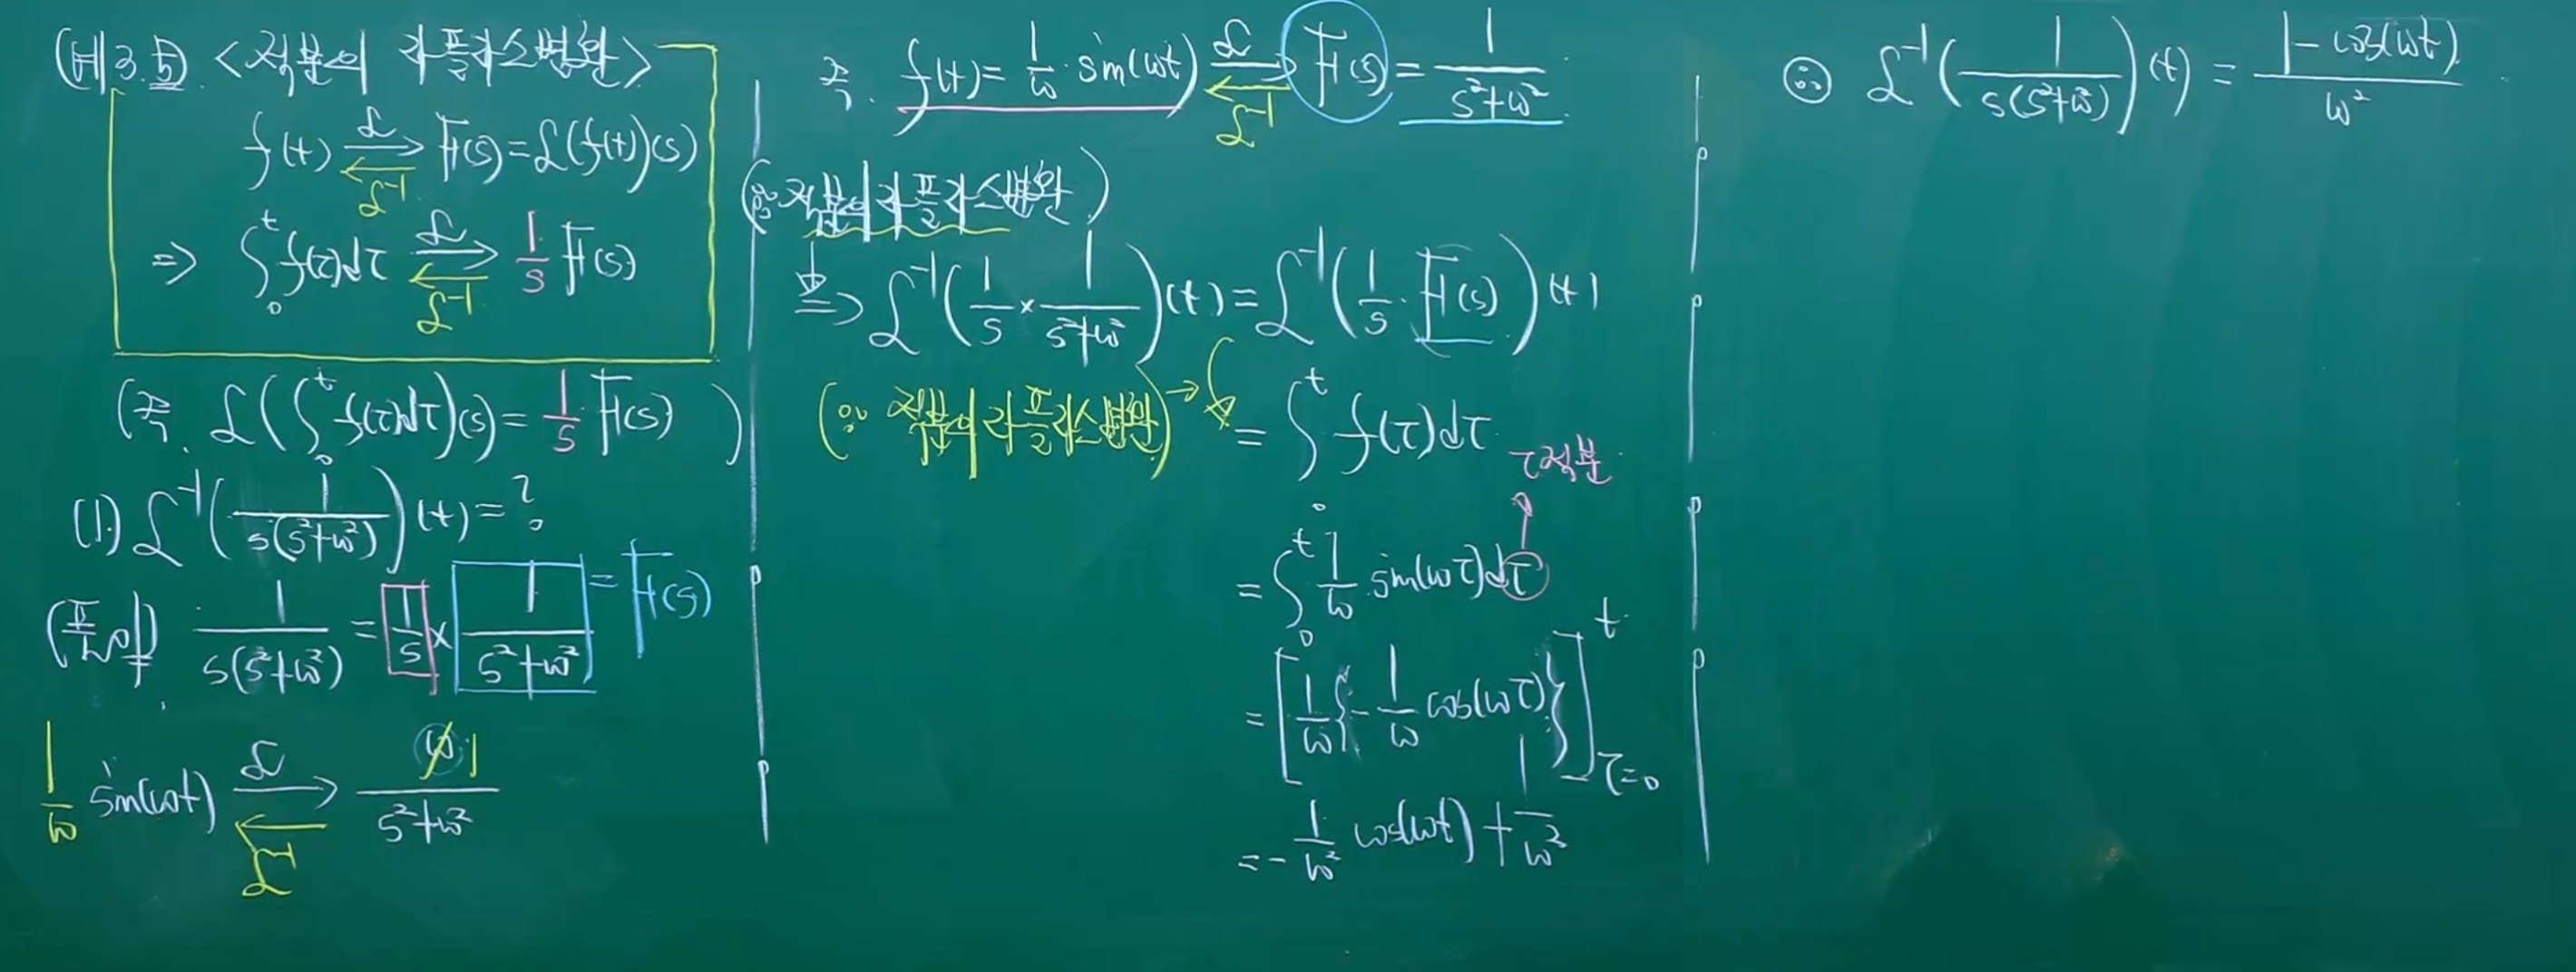 (예3.5) <적분의 라플라스변환>
f(t) ⇄ F(s) = ℒ(f(t))(s)
ℒ
ℒ⁻¹
⇒ ∫₀ᵗ f(τ)dτ ⇄ 1/s F(s)
ℒ
ℒ⁻¹
(즉. ℒ(∫₀ᵗ f(τ)dτ)(s) = 1/s F(s))
(1) ℒ⁻¹(1/(s(s²+ω²)))(t) = ?
(풀이) 1/(s(s²+ω²)) = 1/s × 1/(s²+ω²) = F(s)
1/ω sin(ωt) ⇄ ω 1/(s²+ω²)
ℒ
ℒ⁻¹
즉. f(t) = 1/ω · sin(ωt) ⇄ F(s) = 1/(s²+ω²)
ℒ
ℒ⁻¹
(∵ 적분의 라플라스변환)
⇒ ℒ⁻¹(1/s × 1/(s²+ω²))(t) = ℒ⁻¹(1/s · F(s))(t)
(∵ 적분의 라플라스변환) → = ∫₀ᵗ f(τ)dτ
τ적분
= ∫₀ᵗ 1/ω sin(ωτ)dτ
= [1/ω{-1/ω cos(ωτ)}]ᵗ τ=0
= -1/ω² cos(ωt) + 1/ω²
∴ ℒ⁻¹(1/(s(s²+ω²)))(t) = (1-cos(ωt))/ω²